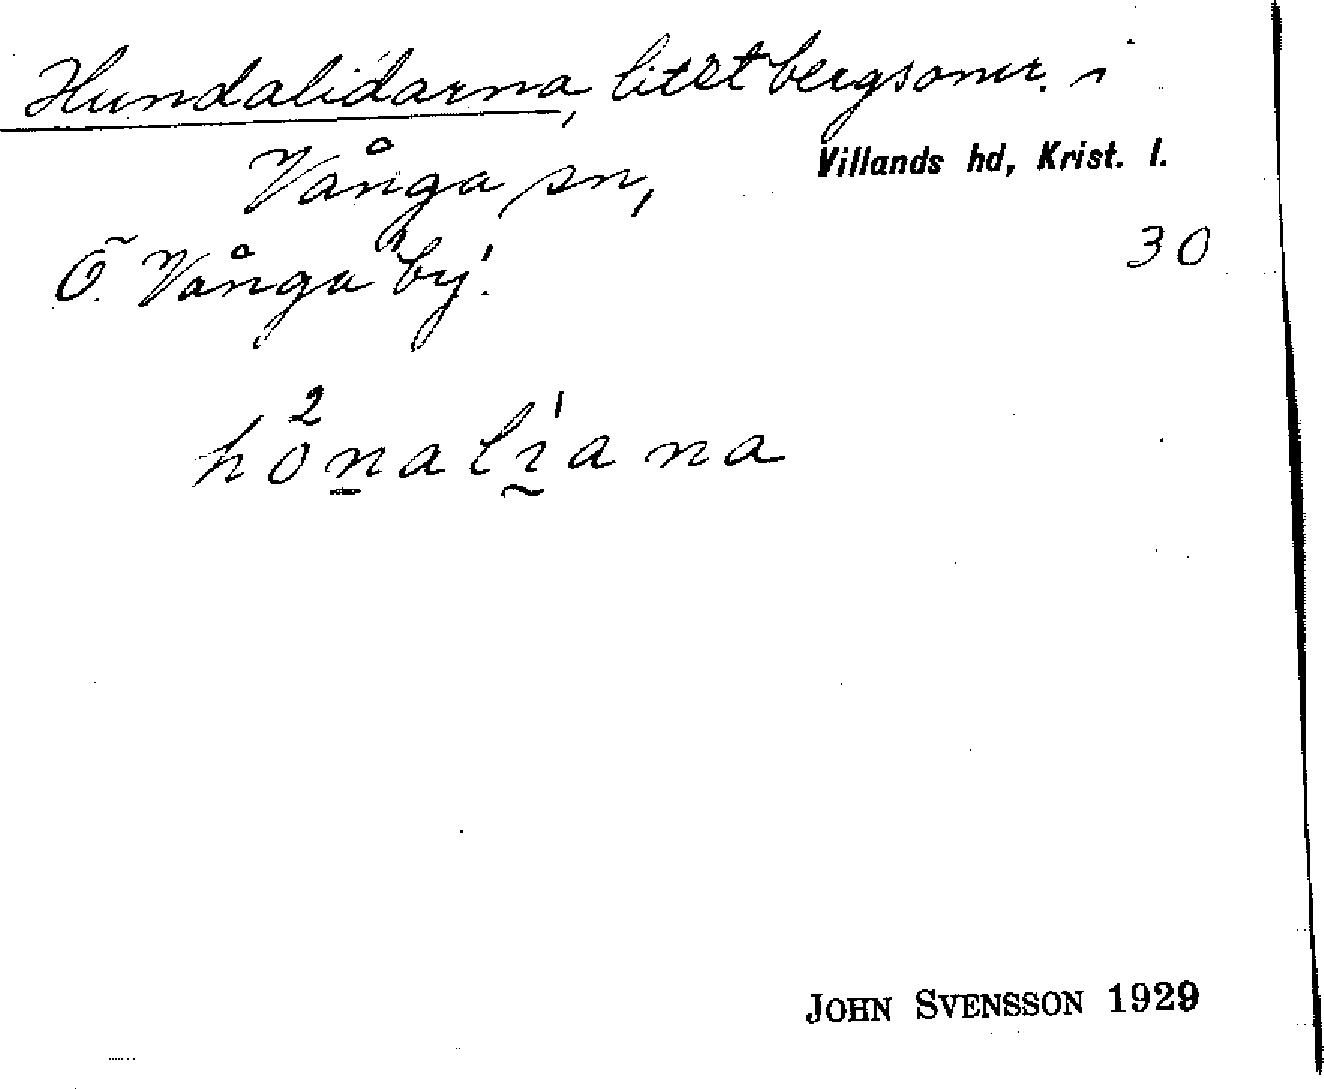 Hundalidarna, litet bergsomr. i
Vånga sn, Villands hd, Krist. l.
Ö. Vånga by.
30
hònalíana
JOHN SVENSSON 1929